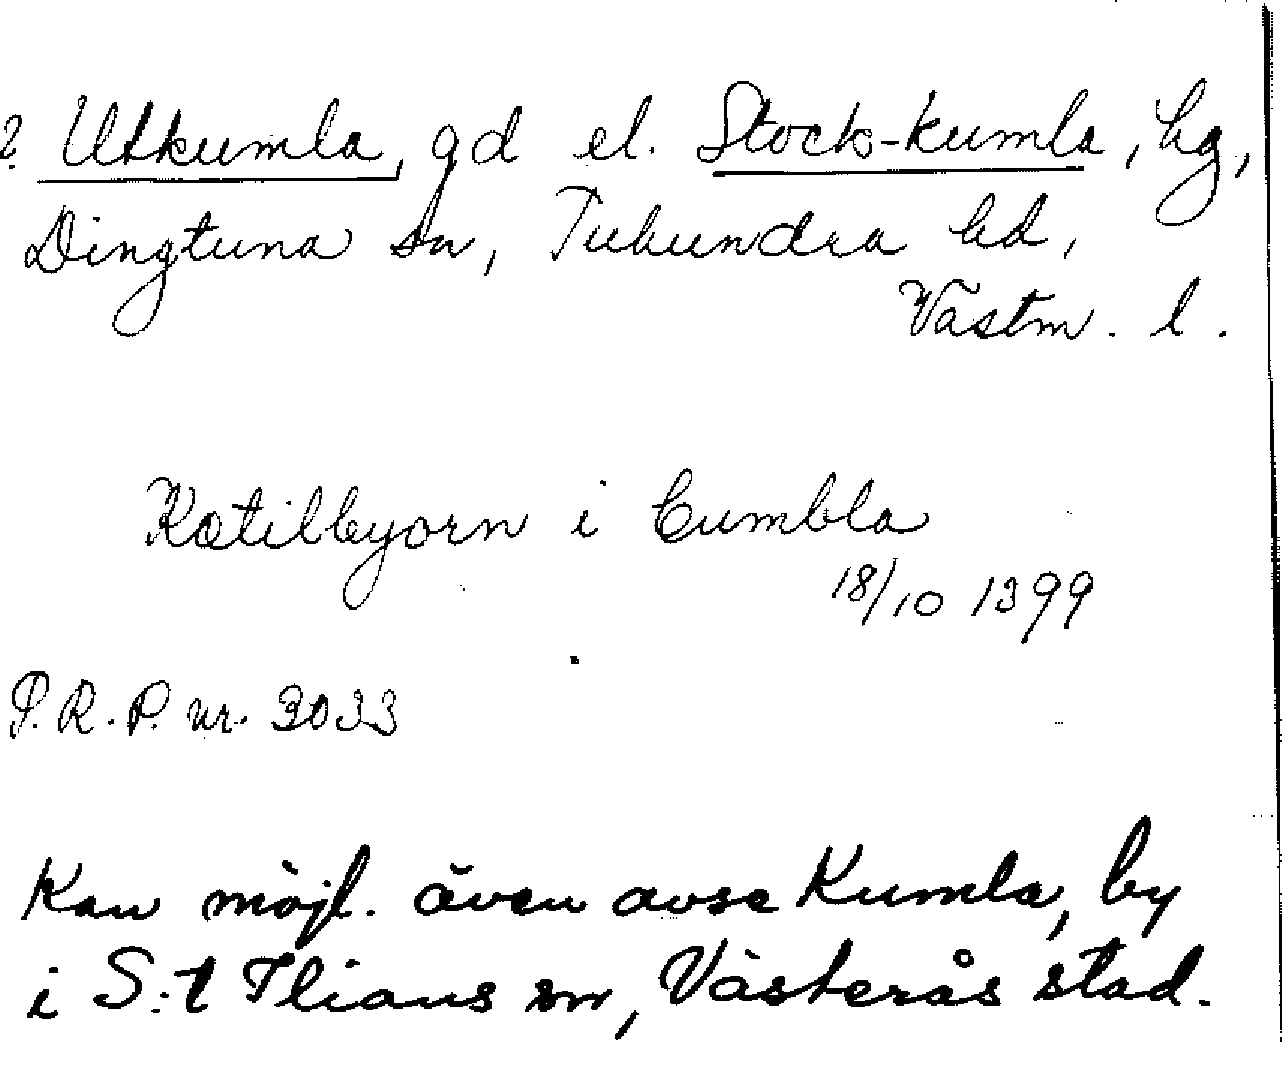 ? Utkumla, gd el. Stock-kumla, lg,
Dingtuna sn, Tuhundra hd,
Västm. l.
Kætilbyorn i Cumbla
18/10 1399
P.R.P. nr. 3033
Kan möjl. även avse Kumla, by
i S:t Ilians sn, Västerås stad.